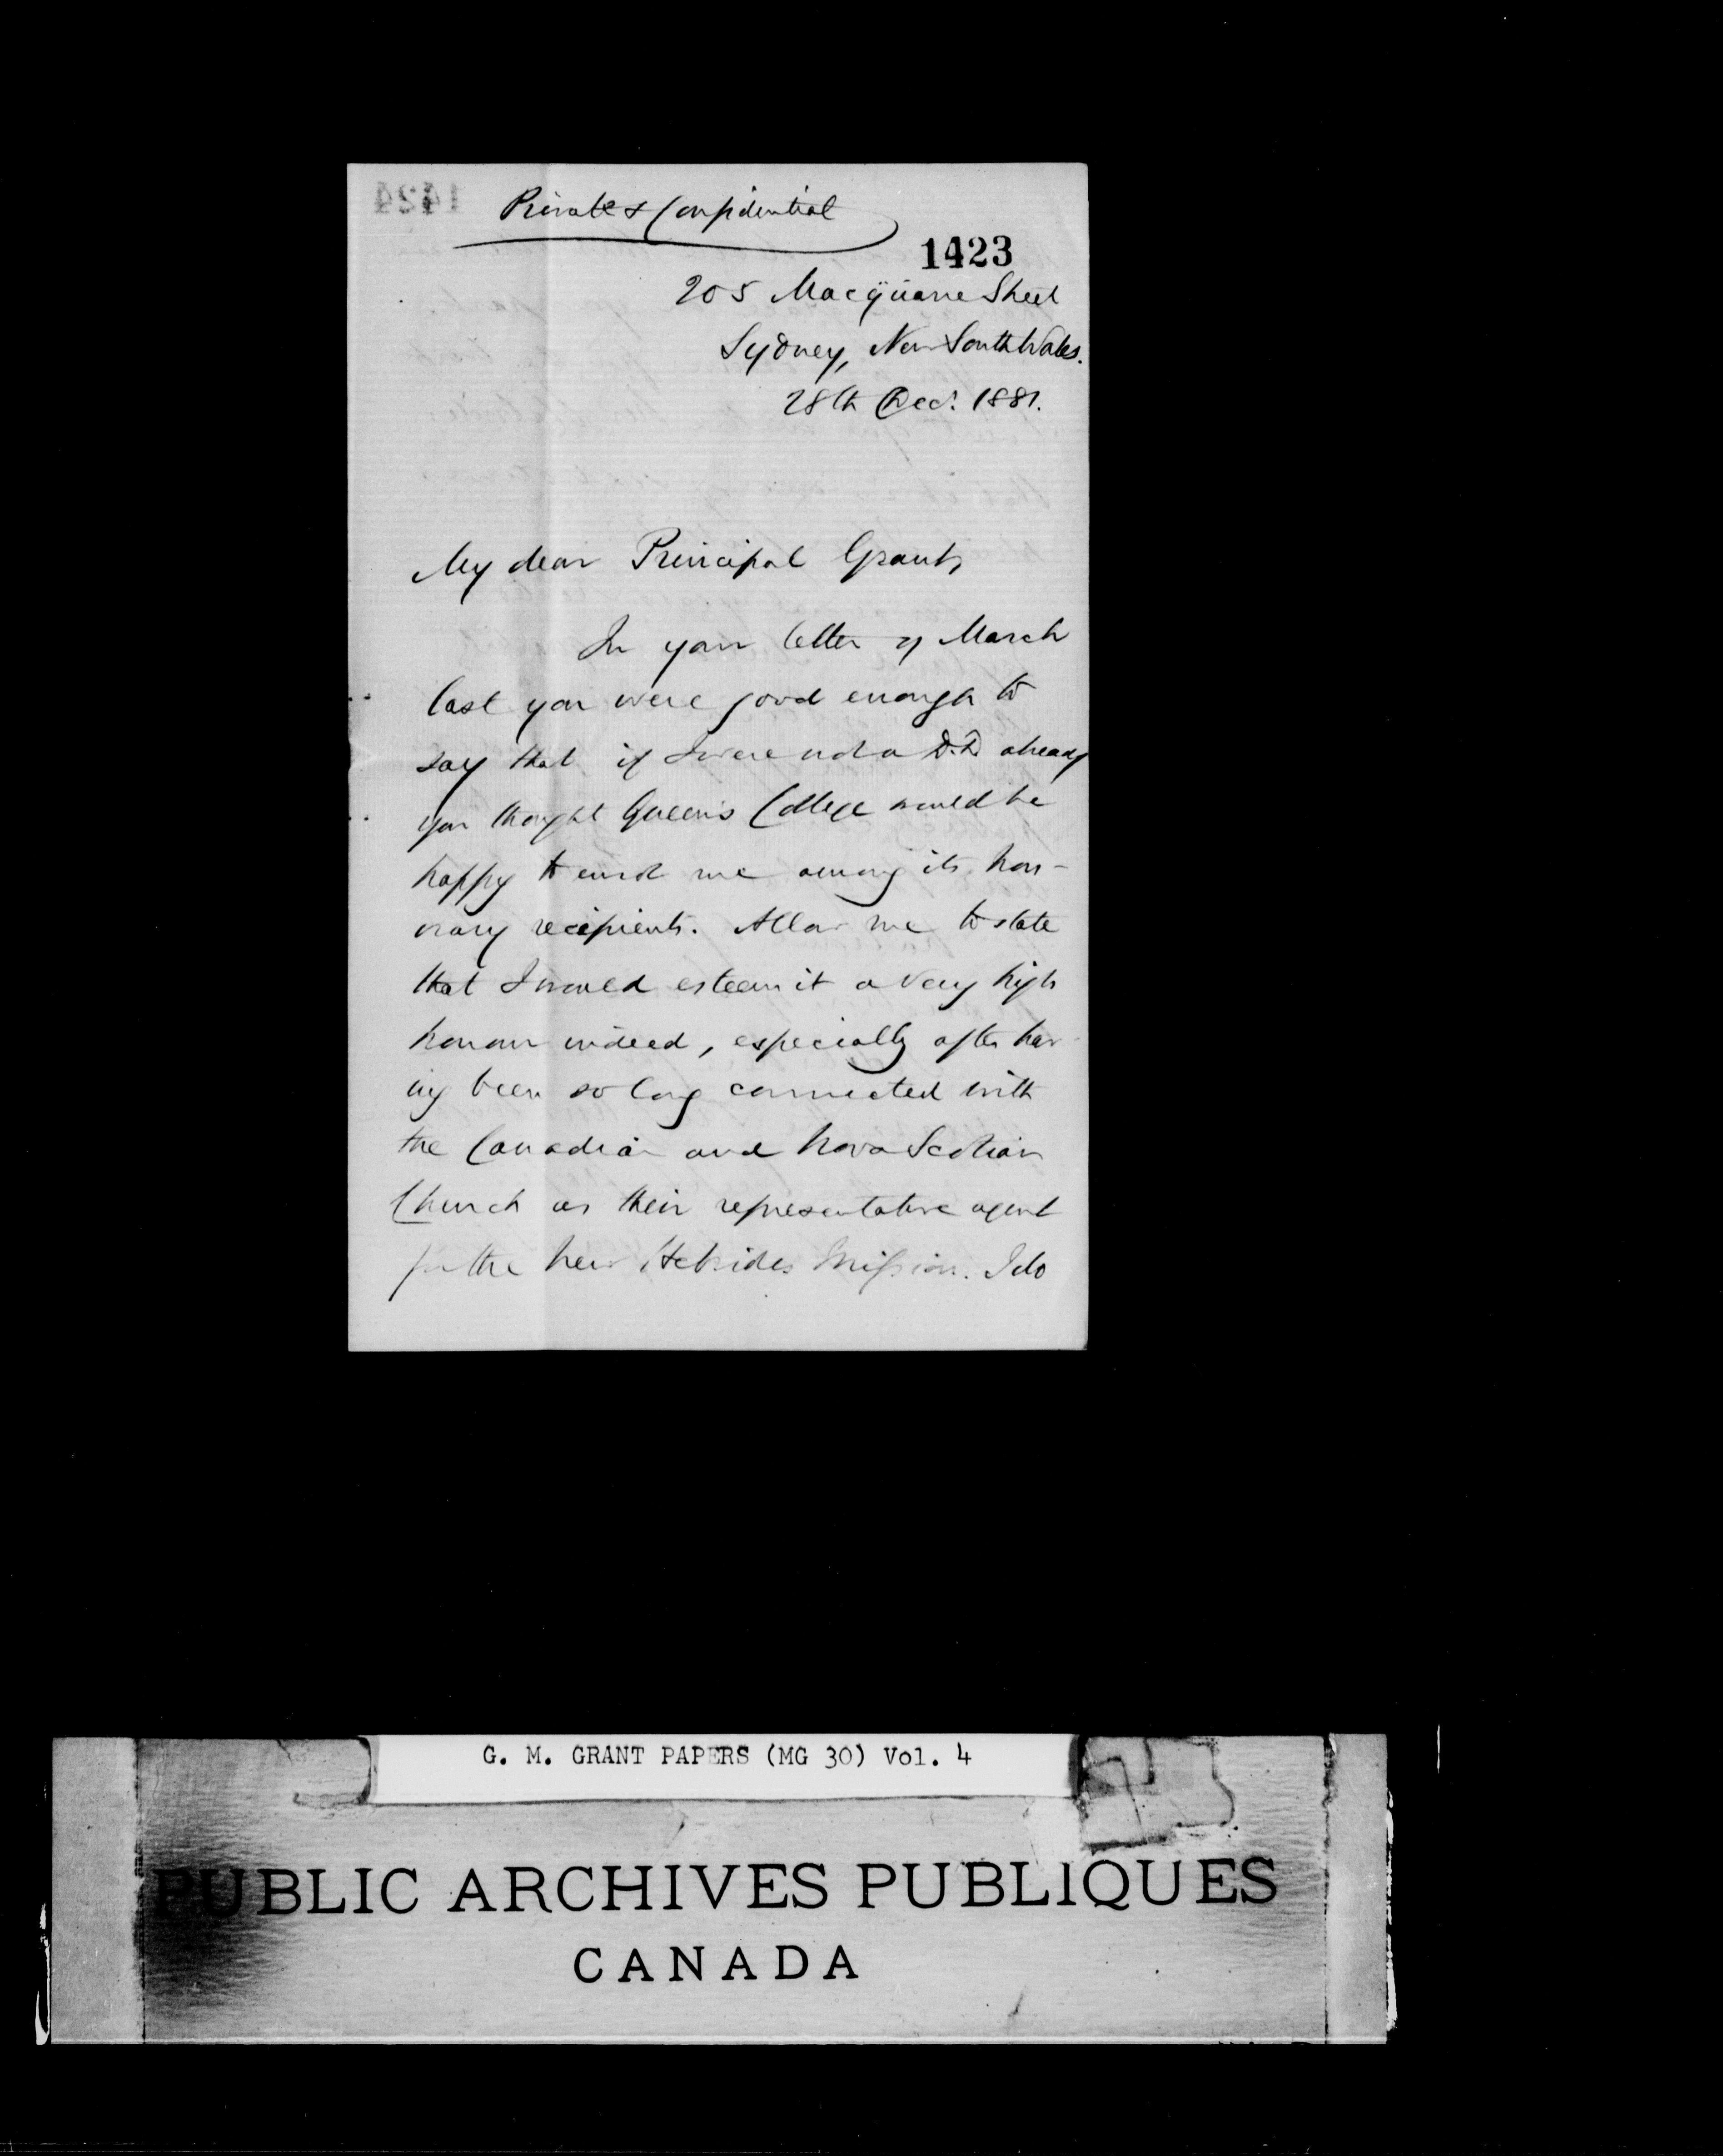 Private & Confidential
1423
205 Macquarie Street
Sydney, New South Wales.
28th Decr. 1881.
My dear Principal Grant,
In your letter of March
last you were good enough to
say that if I were not a D.D. already
you thought Queen's College would be
happy to enrol me among its hon-
orary recipients. Allow me to state
that I would esteem it a very high
honour indeed, especially after hav-
ing been so long connected with
the Canadian and Nova Scotian
Church as their representative agent
for the New Hebrides Mission. I do
G. M. GRANT PAPERS (MG 30) Vol. 4
PUBLIC ARCHIVES PUBLIQUES
CANADA